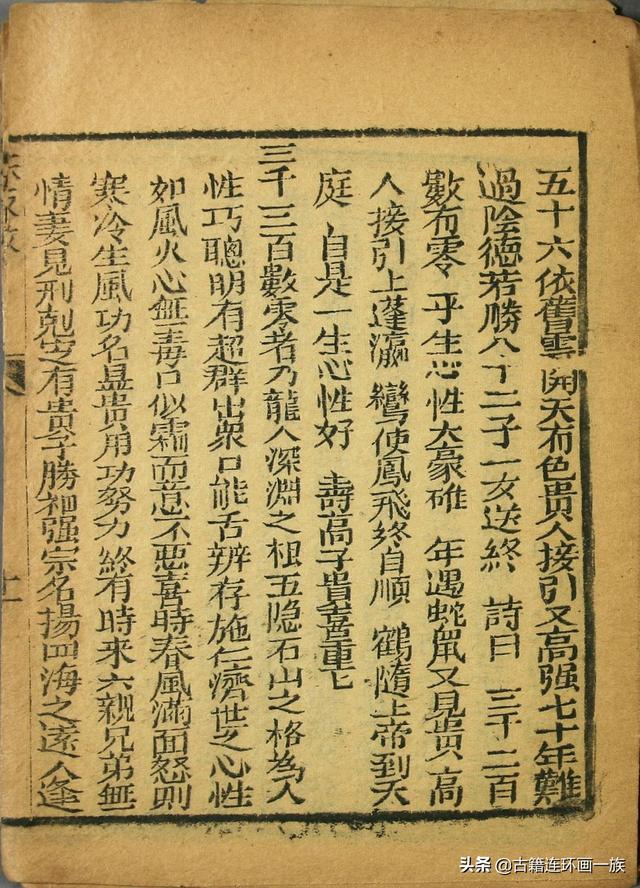 五十六依舊雲開天有色貴人接引又高强七十年難
過陰德若勝八十二子一女送終 詩曰 三千二百
數布零 乎生心性大豪雄 年遇蛇鼠又見贵 高
人接引上蓬瀛 鸞使鳳飛終自順 鶴隨上帝到天
庭 自是一生心性好 壽高子貴喜重七
三千三百數零者乃龍入深淵之相玉隐石山之格為人
性巧聰明有超群出衆口能舌辨存施仁濟世之心性
如風火心無毒口似霜而意不惡喜時春風滿面怒則
寒冷生風功名显贵用功努力終有時来六親兄弟無
情妻見刑剋定有貴子勝祖强宗名揚四海之遠人逢
上
头条 @古籍连环画一族